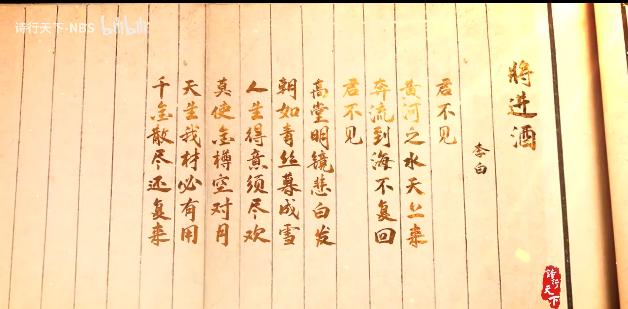 诗行天下-NBS bilibili
将进酒
李白
君不见
黄河之水天上来
奔流到海不复回
君不见
高堂明镜悲白发
朝如青丝暮成雪
人生得意须尽欢
莫使金樽空对月
天生我材必有用
千金散尽还复来
诗行天下